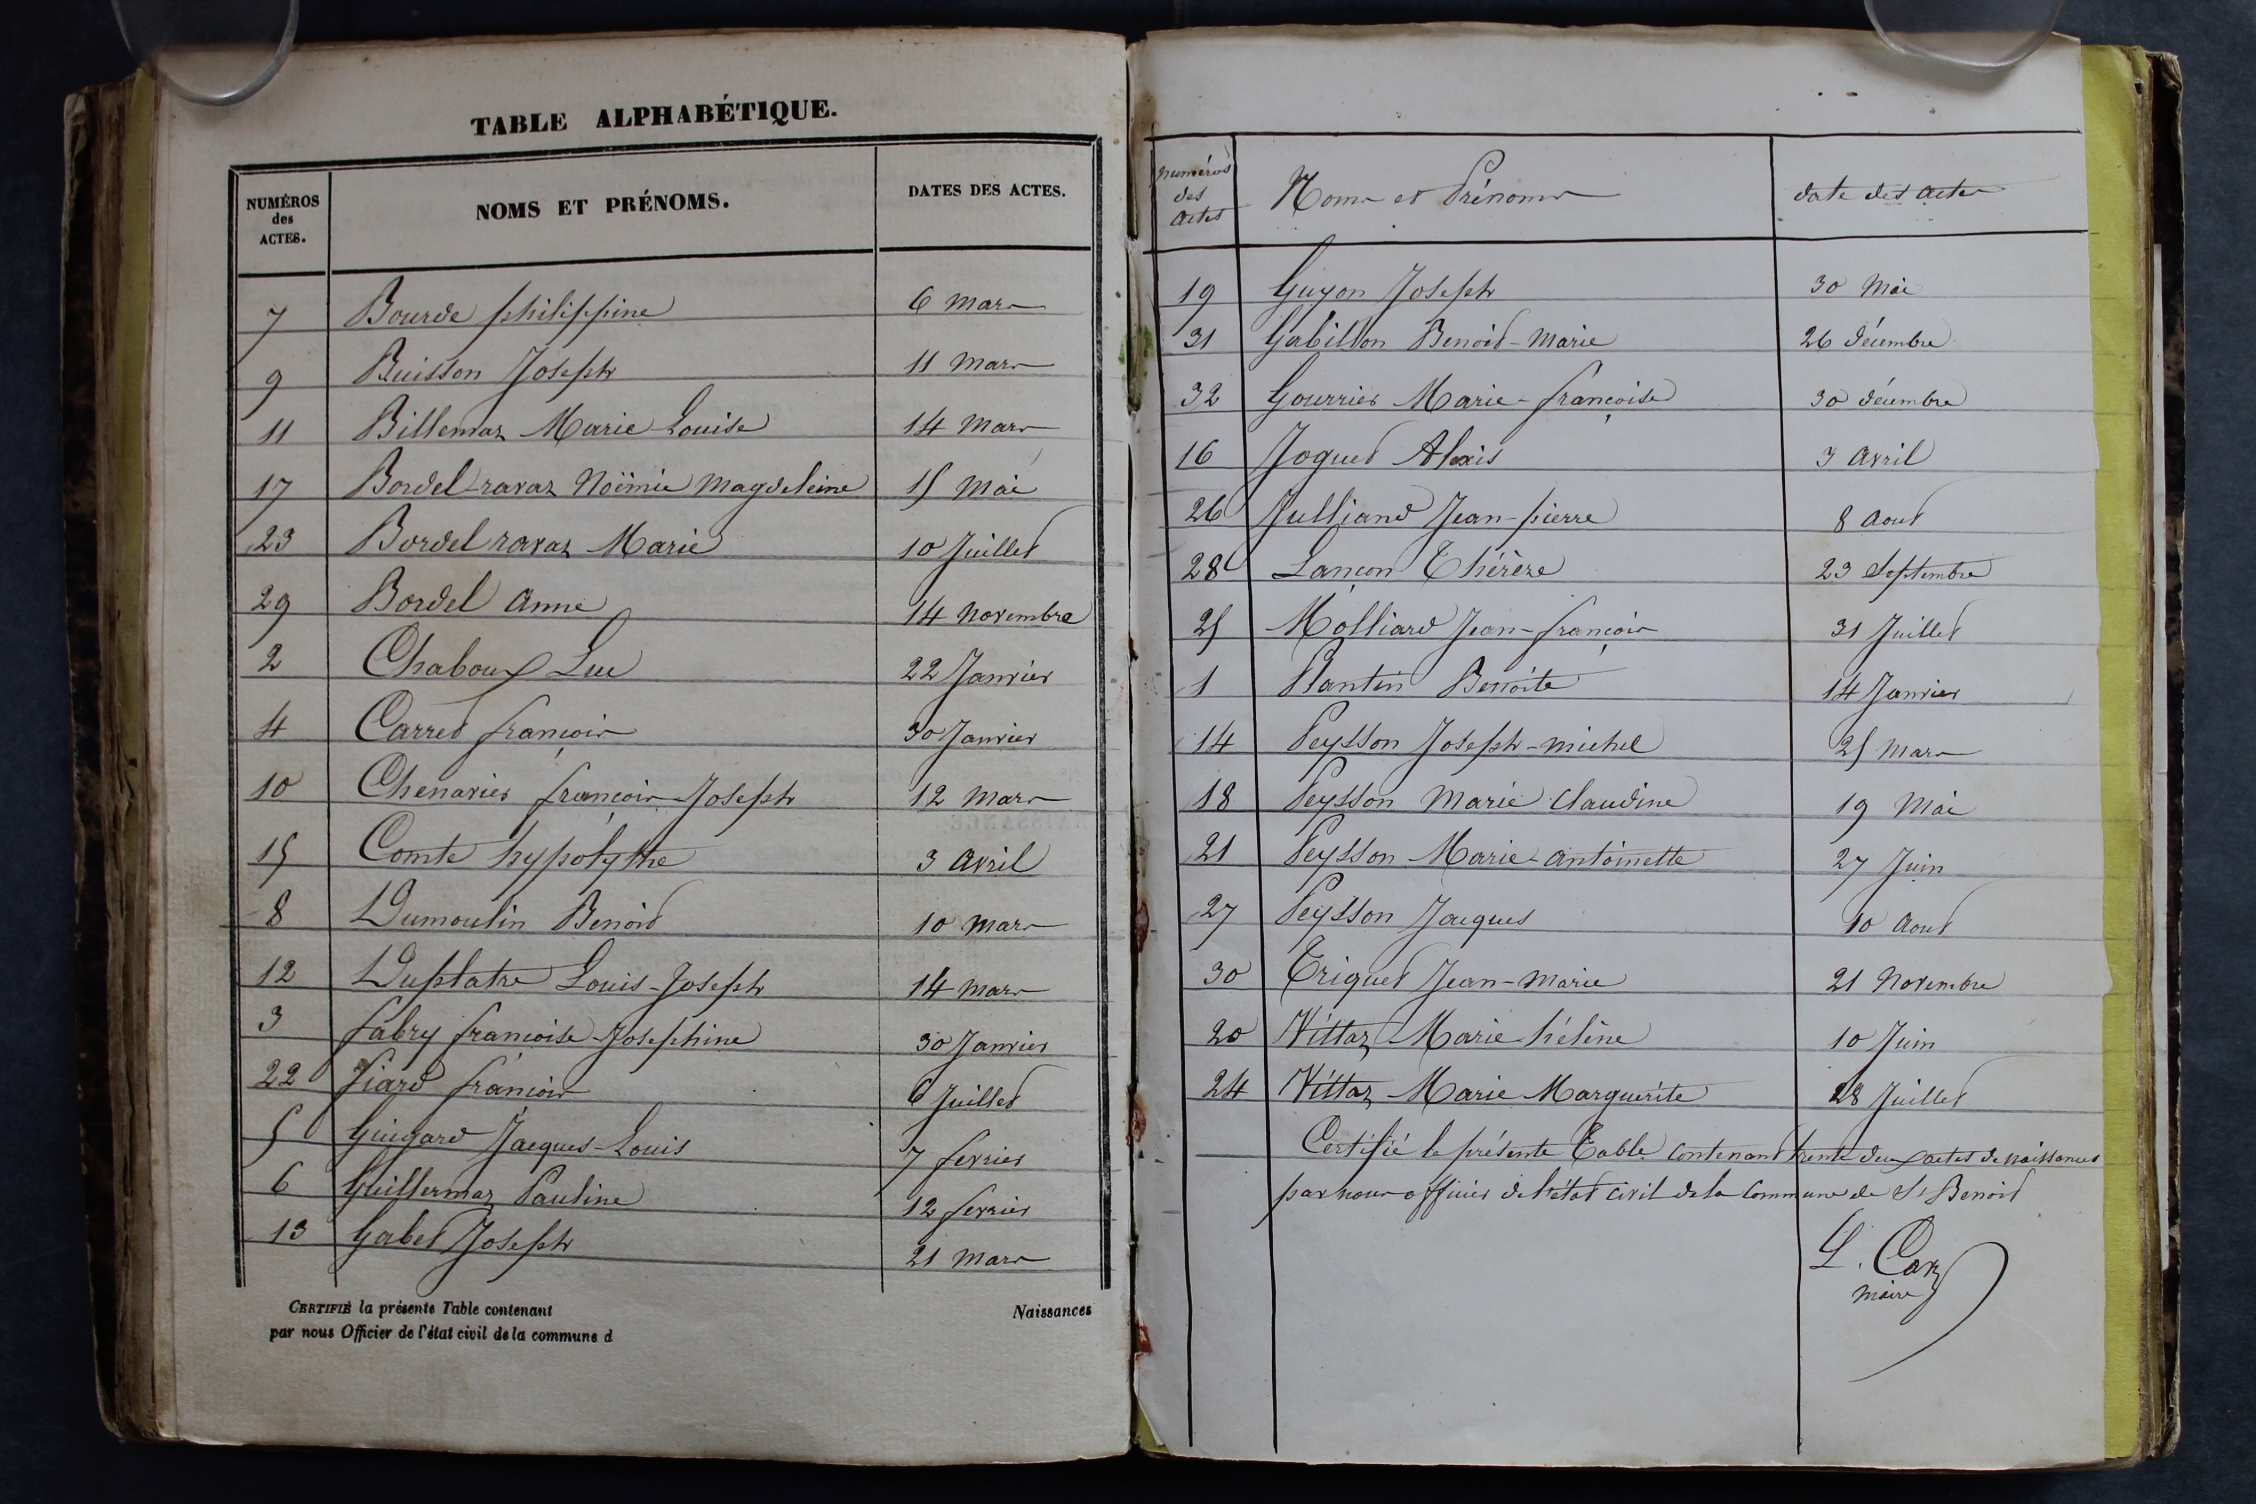 TABLE ALPHABÉTIQUE.
NUMÉROS des ACTES. NOMS ET PRÉNOMS. DATES DES ACTES.
7 Bourde philippine 6 mars
9 Buisson Joseph 11 mars
11 Billemaz Marie Louise 14 mars
17 Bordel-ravaz Noëmie Magdeleine 15 Mai
23 Bordel ravaz Marie 10 Juillet
29 Bordel Anne 14 Novembre
2 Chaboux Luc 22 Janvier
4 Carret françois 30 Janvier
10 Chenavier françois-Joseph 12 mars
15 Comte hypolythe 3 Avril
8 Dumoulin Benoit 10 mars
12 Duplatre Louis-Joseph 14 mars
3 fabry françoise-Josephine 30 Janvier
22 fiard françois 6 Juillet
5 Guigard Jacques-Louis 7 fevrier
6 Guillermaz Pauline 12 fevrier
13 Gabet Joseph 21 mars
CERTIFIÉ la présente Table contenant Naissances
par nous Officier de l'état civil de la commune d
Numéros des Actes Noms et Prénoms date des actes
19 Guyon Joseph 30 Mai
31 Gabillon Benoit-Marie 26 décembre
32 Gourrier Marie-françoise 30 décembre
16 Joguet Alexis 3 Avril
26 Julliand Jean-pierre 8 Aout
28 Lançon Thérèze 23 Septembre
25 Molliard Jean-françois 31 Juillet
1 Plantin Benoite 14 Janvier
14 Peysson Joseph-michel 25 mars
18 Peysson Marie Claudine 19 Mai
21 Peysson Marie-antoinette 27 Juin
27 Peysson Jacques 10 Aout
30 Triquet Jean-Marie 21 Novembre
20 Vittaz Marie-hélène 10 Juin
24 Vittaz Marie Marguerite 28 Juillet
Certifié la présente Table contenant trente deux actes de naissances
par nous officier de l'état civil de la Commune de St Benoit
L. Caz
Maire